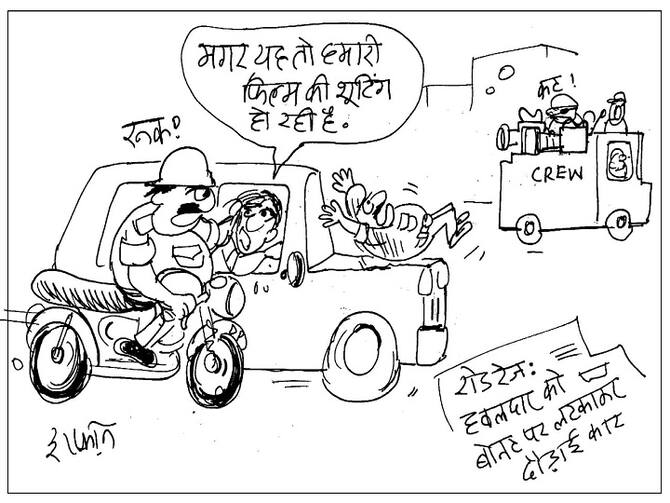 मगर यह तो हमारी
फिल्म की शूटिंग
हो रही है.
रूक!
कट!
CREW
रोड रेज:
हवलदार को
बोनट पर लटकाकर
दौड़ाई कार
इरफान